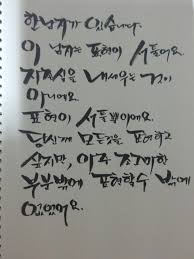 한남자가 있습니다.
이 남자는 표현이 서툴어요.
자존심을 내세우는 것이
아니에요.
표현이 서툴뿐이에요.
당신께 모든것을 표현하고
싶지만, 아주 조그마한
부분밖에 표현할수 밖에
없었어요.